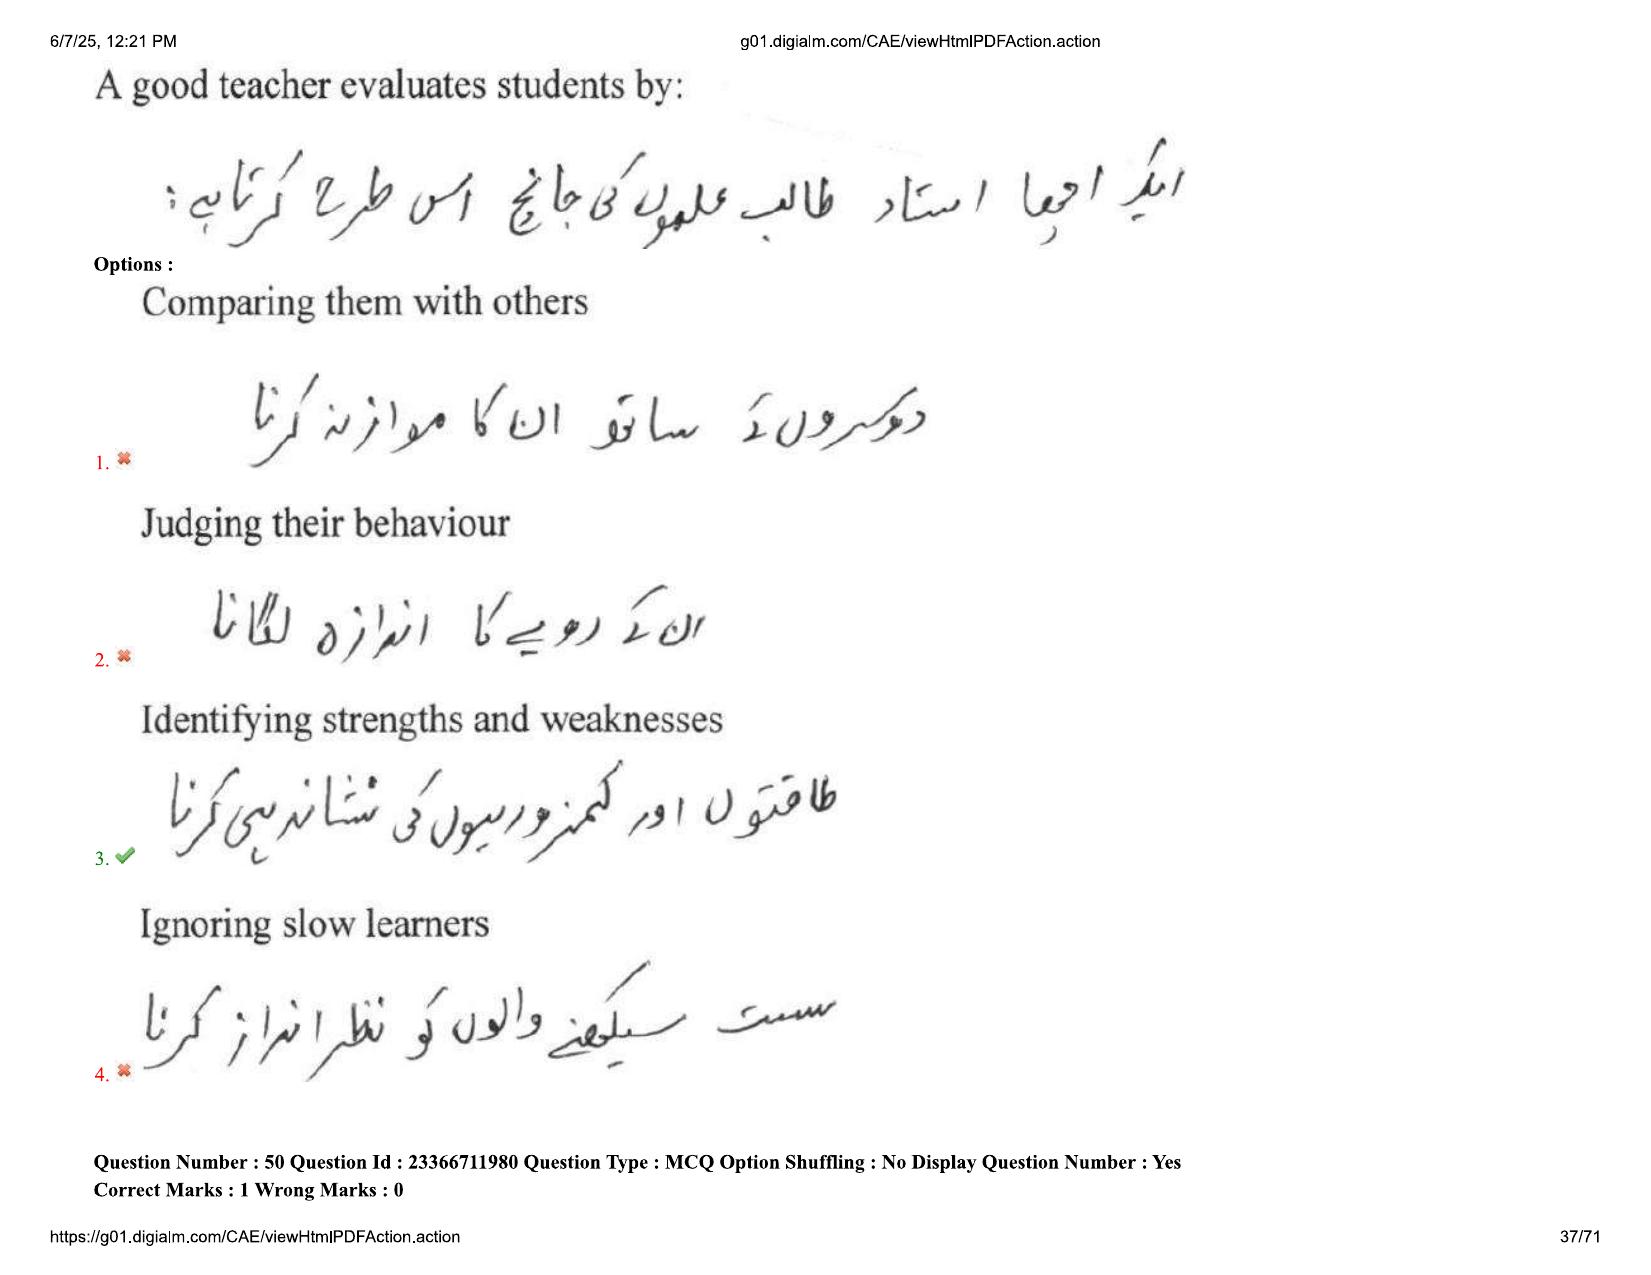 6/7/25, 12:21 PM
g01.digialm.com/CAE/viewHtmlPDFAction.action
A good teacher evaluates students by:
ایک اچھا استاد طالب علموں کی جانچ اس طرح کرتا ہے:
Options :
Comparing them with others
دوسروں کے ساتھ ان کا موازنہ کرنا
1.
Judging their behaviour
ان کے رویے کا اندازہ لگانا
2.
Identifying strengths and weaknesses
طاقتوں اور کمزوریوں کی نشاندہی کرنا
3.
Ignoring slow learners
سست سیکھنے والوں کو نظر انداز کرنا
4.
Question Number : 50 Question Id : 23366711980 Question Type : MCQ Option Shuffling : No Display Question Number : Yes
Correct Marks : 1 Wrong Marks : 0
https://g01.digialm.com/CAE/viewHtmlPDFAction.action
37/71